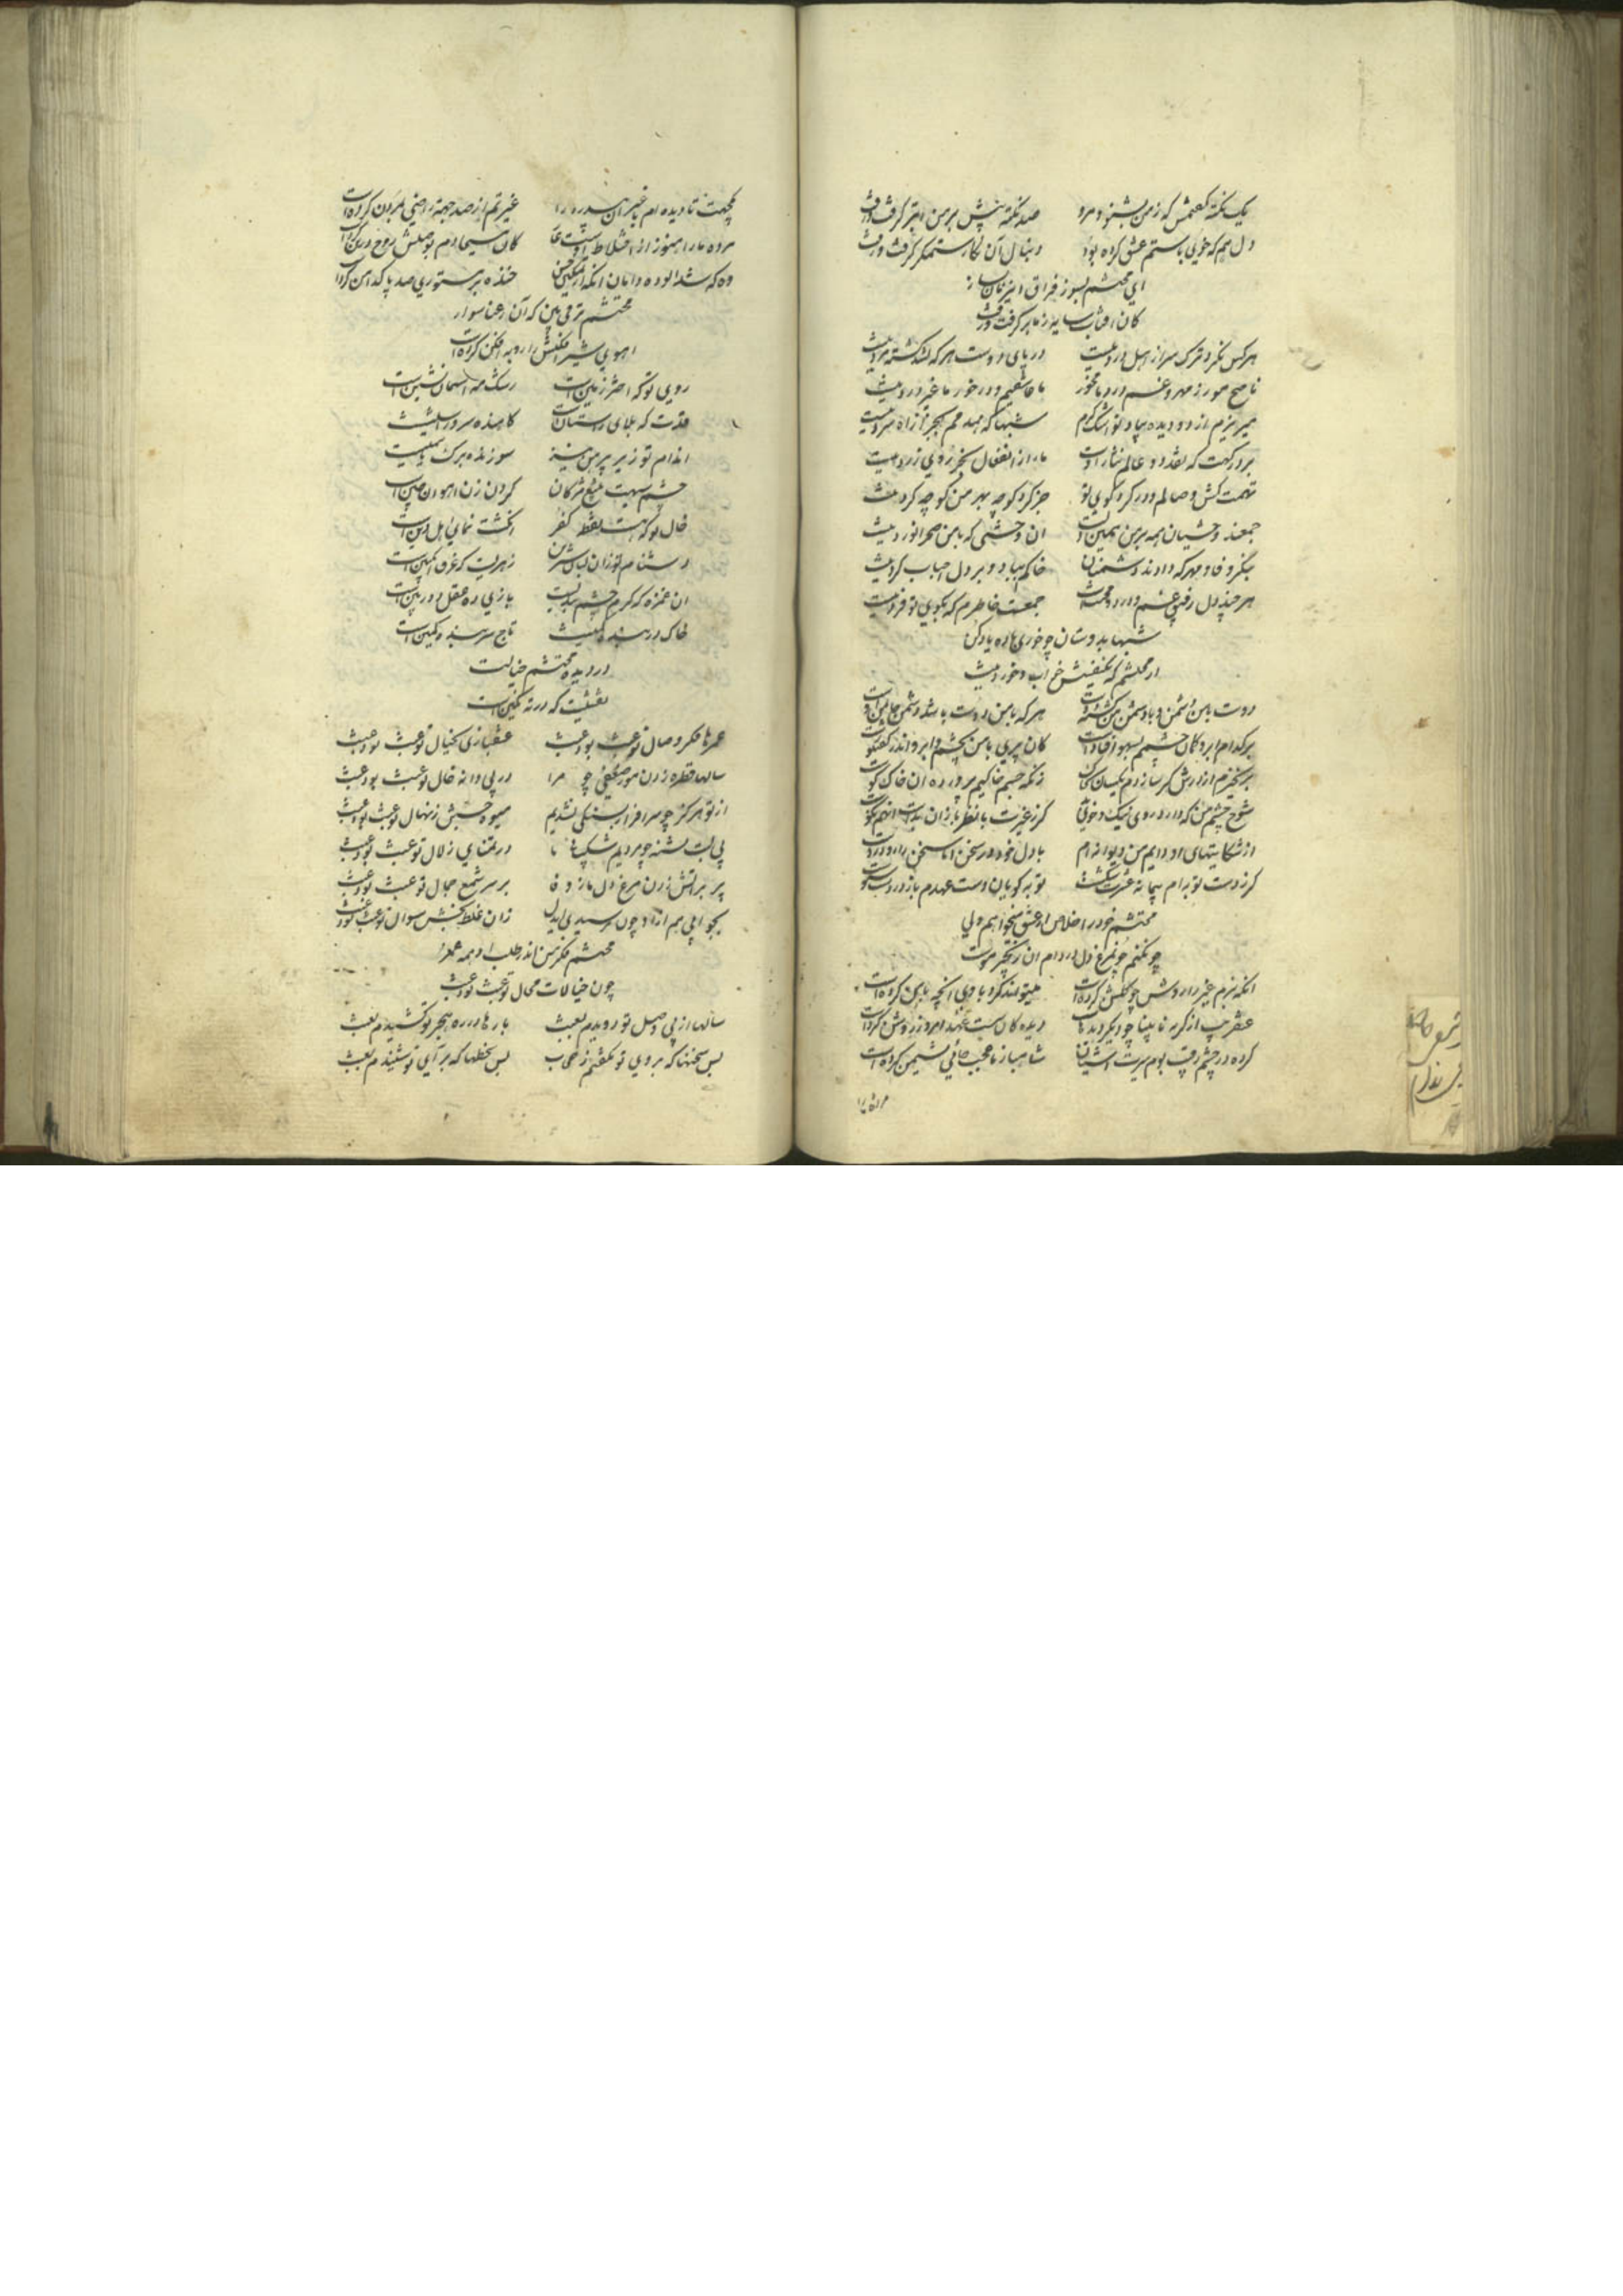 یک نکته گفتمش که ز من بشنو و مرو صد نکته پیش بر من ابتر گرفت و رفت
دل هم که خوی با ستم عشق کرده بود دنبال آن نگار ستمگر گرفت و رفت
ای محتشم بسوز فراق این زمان بساز
کان افتاب سایه ز ما بر گرفت و رفت
هر کس نکرد ترک سر از اهل درد نیست در پای دوست هر که نشد کشته مرد نیست
ناصح مرا ز مهر و غم درد ما مخور ما عاشقیم و در خور ما غیر درد نیست
میریزم از دو دیده بیاد تو اشک گرم شبها که همدمم بجز از آه سرد نیست
بر درگهت که نقد دو عالم نثار اوست ما را از انفعال بجز روی زرد نیست
تهمت کش وصالم و در گرد کوی تو جز گرد کوچه بهر من کوچه گرد نیست
جمعند وحشیان همه بر من همین ان وحشیی که با من صحرا نورد نیست
بنگر وفا و مهر که دادند دشمنان خاکم بباد و بر دل احباب گرد نیست
هر چند دل رفیق غم و درد و محنتست جمعست خاطرم که بکوی تو فرد نیست
شبها بدوستان چو خوری باده یاد کن
از محتشم که بی تو خواب و خورد نیست
دوست با من دشمن و با دشمن من گشته دوست هر که با من دوست باشد دشمن جان من اوست
بر کدام ابرو کمان چشمم بسهو افتاده است کان پری با من بچشم و ابرو اندر گفتگوست
بر نخیزم از درش گر سازدم یکسان بخاک زانکه جسم خاکیم پرورده ان خاک کوست
شوخ چشم من که دارد روی نیک و خوی بد گر ز غیرت با نظربازان بدست انهم نکوست
از شکایتهای او دایم من دیوانه ام با دل خود در سخن اما سخن را رو دروست
گر ز دست توبه ام پیمانه عشرت شکست توبه گویان دست عهدم باز در دست سبوست
محتشم خود را خلاص از عشق میخواهم ولی
چون کنم چون مرغ دل در دام ان زنجیر موست
انکه بزم غیر را روشن چو گلشن کرده است میتواند کرد با وی انچه با من کرده است
عنقریب از گریه نابینا چو دیگر دیدهاست دیده کان سست عهد امروز روشن کرده است
کرده در چشم رقیب بوم سیرت اشیان شاهباز ما عجب جائی نشیمن کرده است
بچهت تا دیده ام با غیر غیرتم از صد جهت راضی بمردن کرده است
مرده ما را هنوز از اختلاط اوست عار کان مسیحا دم بوصلش روح در تن کرده است
وه که شد الوده دامان انکه از تمکین حسن خنده بر مستوری صد پاکدامن کرده است
محتشم ترمی ببین که آن رعنا سوار
اهوی شیرافکنش را روبه افکن کرده است
روی تو که اختر زمین است رشک مه اسمان نشین است
قدت که بلای راستان است کاهنده سرو راستین است
اندام تو زیر پیرهن نیز سوزنده برگ یاسمین است
چشم سیهت بتیغ مژگان گردن زن اهوان چین است
خال تو که هست نقطه کفر انگشت نمای اهل دین است
دشنام تو زان لبان شیرین زهریست که غرق انگبین است
ان غمزه که گرم چشم بندیست بازی ده عقل دور بین است
خاک در تاج سر
در دیده محتشم خیالت
نقشیست که در ته نگین است
عمرها فکر وصال تو عبث بود عبث عشقبازی بخیال تو عبث بود عبث
سالها قطره زدن مور ضعیفی چو مرا در پی دانه خال تو عبث بود عبث
از تو هرگز چو سرافراز بسنگی نشدیم میوه جستن ز نهال تو عبث بود عبث
پی لب تشنه چو مردیم شکیبائی ما در تمنای زلال تو عبث بود عبث
پر بر آتش زدن مرغ دل ما ز وفا بر سر شمع جمال تو عبث بود عبث
بجوابی هم از او چون نرسیدی ایدل زان غلط بخش سوال تو عبث بود عبث
محتشم فکر من اندر طلب او همه عمر
چون خیالات محال تو عبث بود عبث
سالها از پی وصل تو دویدم بعبث بارها در ره هجر تو کشیدم بعبث
بس سخنها که بروی تو نگفتم ز حجاب بس سخنها که برای تو شنیدم بعبث